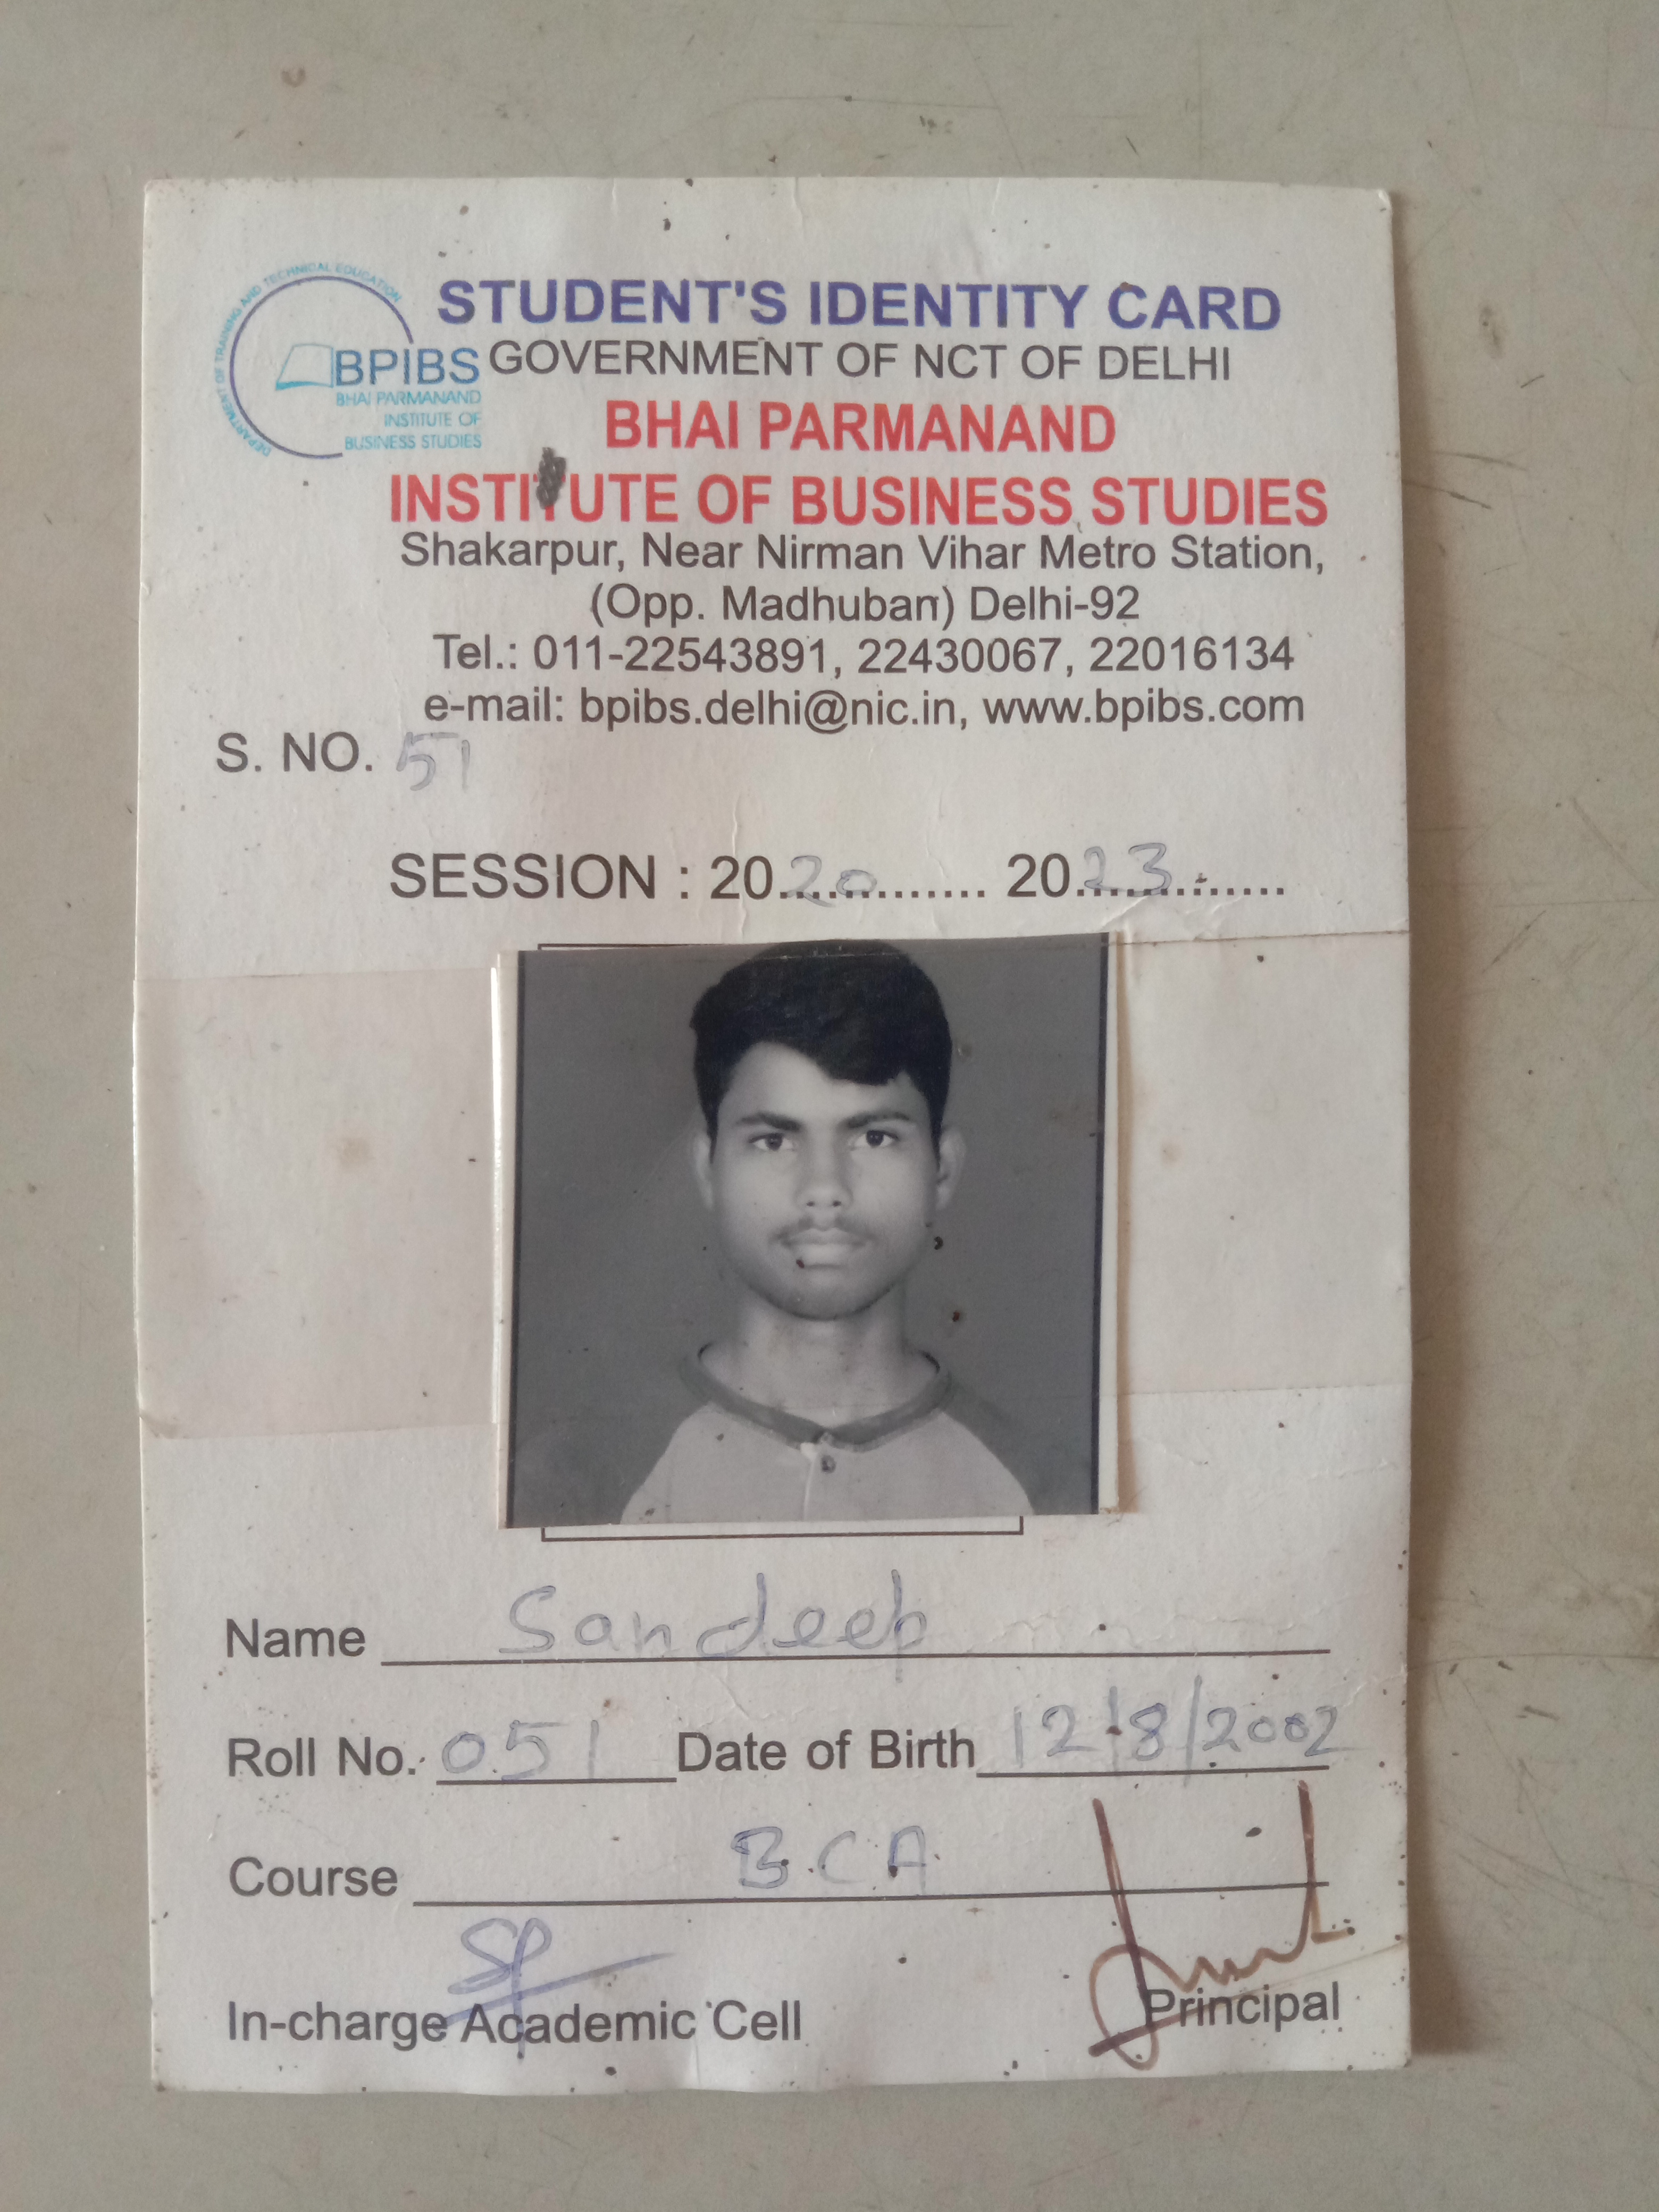 DEPARTMENT OF TRAINING AND TECHNICAL EDUCATION
BPIBS
BHAI PARMANAND
INSTITUTE OF
BUSINESS STUDIES
STUDENT'S IDENTITY CARD
GOVERNMENT OF NCT OF DELHI
BHAI PARMANAND
INSTITUTE OF BUSINESS STUDIES
Shakarpur, Near Nirman Vihar Metro Station,
(Opp. Madhuban) Delhi-92
Tel.: 011-22543891, 22430067, 22016134
e-mail: bpibs.delhi@nic.in, www.bpibs.com
S. NO. 51
SESSION : 2020.............. 2023..............
Name Sandeep
Roll No. 051 Date of Birth 12/8/2002
Course B.C.A.
In-charge Academic Cell Principal